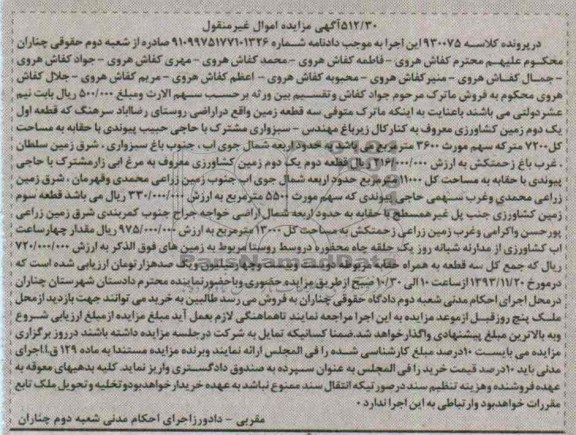 ۵۱۲/۳۰آگهی مزایده اموال غیرمنقول
درپرونده کلاسه ۹۳۰۰۷۵ این اجرا به موجب دادنامه شماره ۹۱۰۹۹۷۵۱۷۷۱۰۱۳۲۶ صادره از شعبه دوم حقوقی چناران
محکوم علیهم محترم کفاش هروی - فاطمه کفاش هروی - محمد کفاش هروی - مهری کفاش هروی - جواد کفاش هروی
- جمال کفاش هروی - منیر کفاش هروی - محبوبه کفاش هروی - اعظم کفاش هروی - مریم کفاش هروی - جلال کفاش
هروی محکوم به فروش ماترک مرحوم جواد کفاش وتقسیم بین ورثه برحسب سهم الارث ومبلغ ۵۰۰/۰۰۰ ریال بابت نیم
عشردولتی می باشند باعنایت به اینکه ماترک متوفی سه قطعه زمین واقع دراراضی روستای رضااباد سرهنگ که قطعه اول
یک دوم زمین کشاورزی معروف به کنارکال زیرباغ مهندس - سبزواری مشترک با حاجی حبیب پیوندی با حقابه به مساحت
کل۷۲۰۰ مترکه سهم مورث ۳۶۰۰ مترمربع می باشد به حدود اربعه شمال جوی اب، جنوب باغ سبزواری ، شرق زمین سلطان
، غرب باغ زحمتکش به ارزش ۲۱۶/۰۰۰/۰۰۰ ریال قطعه دوم یک دوم زمین کشاورزی معروف به مرغ ابی زارمشترک با حاجی
پیوندی با حقابه به مساحت کل ۱۱۰۰۰ مترمربع حدود اربعه شمال جوی اب جنوب زمین زراعی محمدی وقهرمان ، شرق زمین
زراعی محمدی وغرب سهمی حاجی پیوندی که سهم مورث ۵۵۰۰ مترمربع به ارزش ۳۳۰/۰۰۰/۰۰۰ ریال می باشد قطعه سوم
زمین کشاورزی جنب پل غیرهمسطح با حقابه به حدود اربعه شمال اراضی خواجه جراح جنوب کمربندی شرق زمین زراعی
پورحسن واکرامی وغرب زمین زراعی زحمتکش به مساحت کل ۱۳۰۰۰ مترمربع به ارزش ۹۷۵/۰۰۰/۰۰۰ ریال مقدار چهارساعت
اب کشاورزی از مدارنه شبانه روز یک حلقه چاه محفوره دروسط روستا مربوط به زمین های فوق الذکر به ارزش ۷۲۰/۰۰۰/۰۰۰
ریال که جمع کل سه قطعه به همراه حقابه مربوطه دویست وبیست وچهارمیلیون ویک صدهزارتومان ارزیابی شده است که
درمورخ ۱۳۹۳/۱۱/۲۰ ازساعت ۱۰ الی ۱۰/۳۰ صبح ازطریق مزایده حضوری وباحضورنماینده محترم دادستان شهرستان چناران
درمحل اجرای احکام مدنی شعبه دوم دادگاه حقوقی چناران به فروش می رسد طالبین به خرید می توانند جهت بازدید از محل
ملک پنج روزقبل ازموعد مزایده به این اجرا مراجعه نمایند تاهماهنگی لازم بعمل آید مبلغ مزایده ازمبلغ ارزیابی شروع
وبه بالاترین مبلغ پیشنهادی واگذارخواهد شد.ضمنا کسانیکه تمایل به شرکت درجلسه مزایده داشته باشند درروز برگزاری
مزایده می بایست ۱۰درصد مبلغ کارشناسی شده را فی المجلس ارائه نمایند وبرنده مزایده مستندا به ماده ۱۲۹ ق.ا.اجرای
مدنی باید ۱۰درصد قیمت خرید را فی المجلس به عنوان سپرده به صندوق دادگستری واریز نماید. کلیه بدهیهای معوقه به
عهده فروشنده وهزینه تنظیم سند درصورتیکه انتقال سند ممنوع نباشد به عهده خریدارخواهدبودوتخلیه و تحویل ملک تابع
مقررات خواهدبود وارتباطی به این اجرا ندارد.
مقربی - دادورزاجرای احکام مدنی شعبه دوم چناران
ParsNamadData